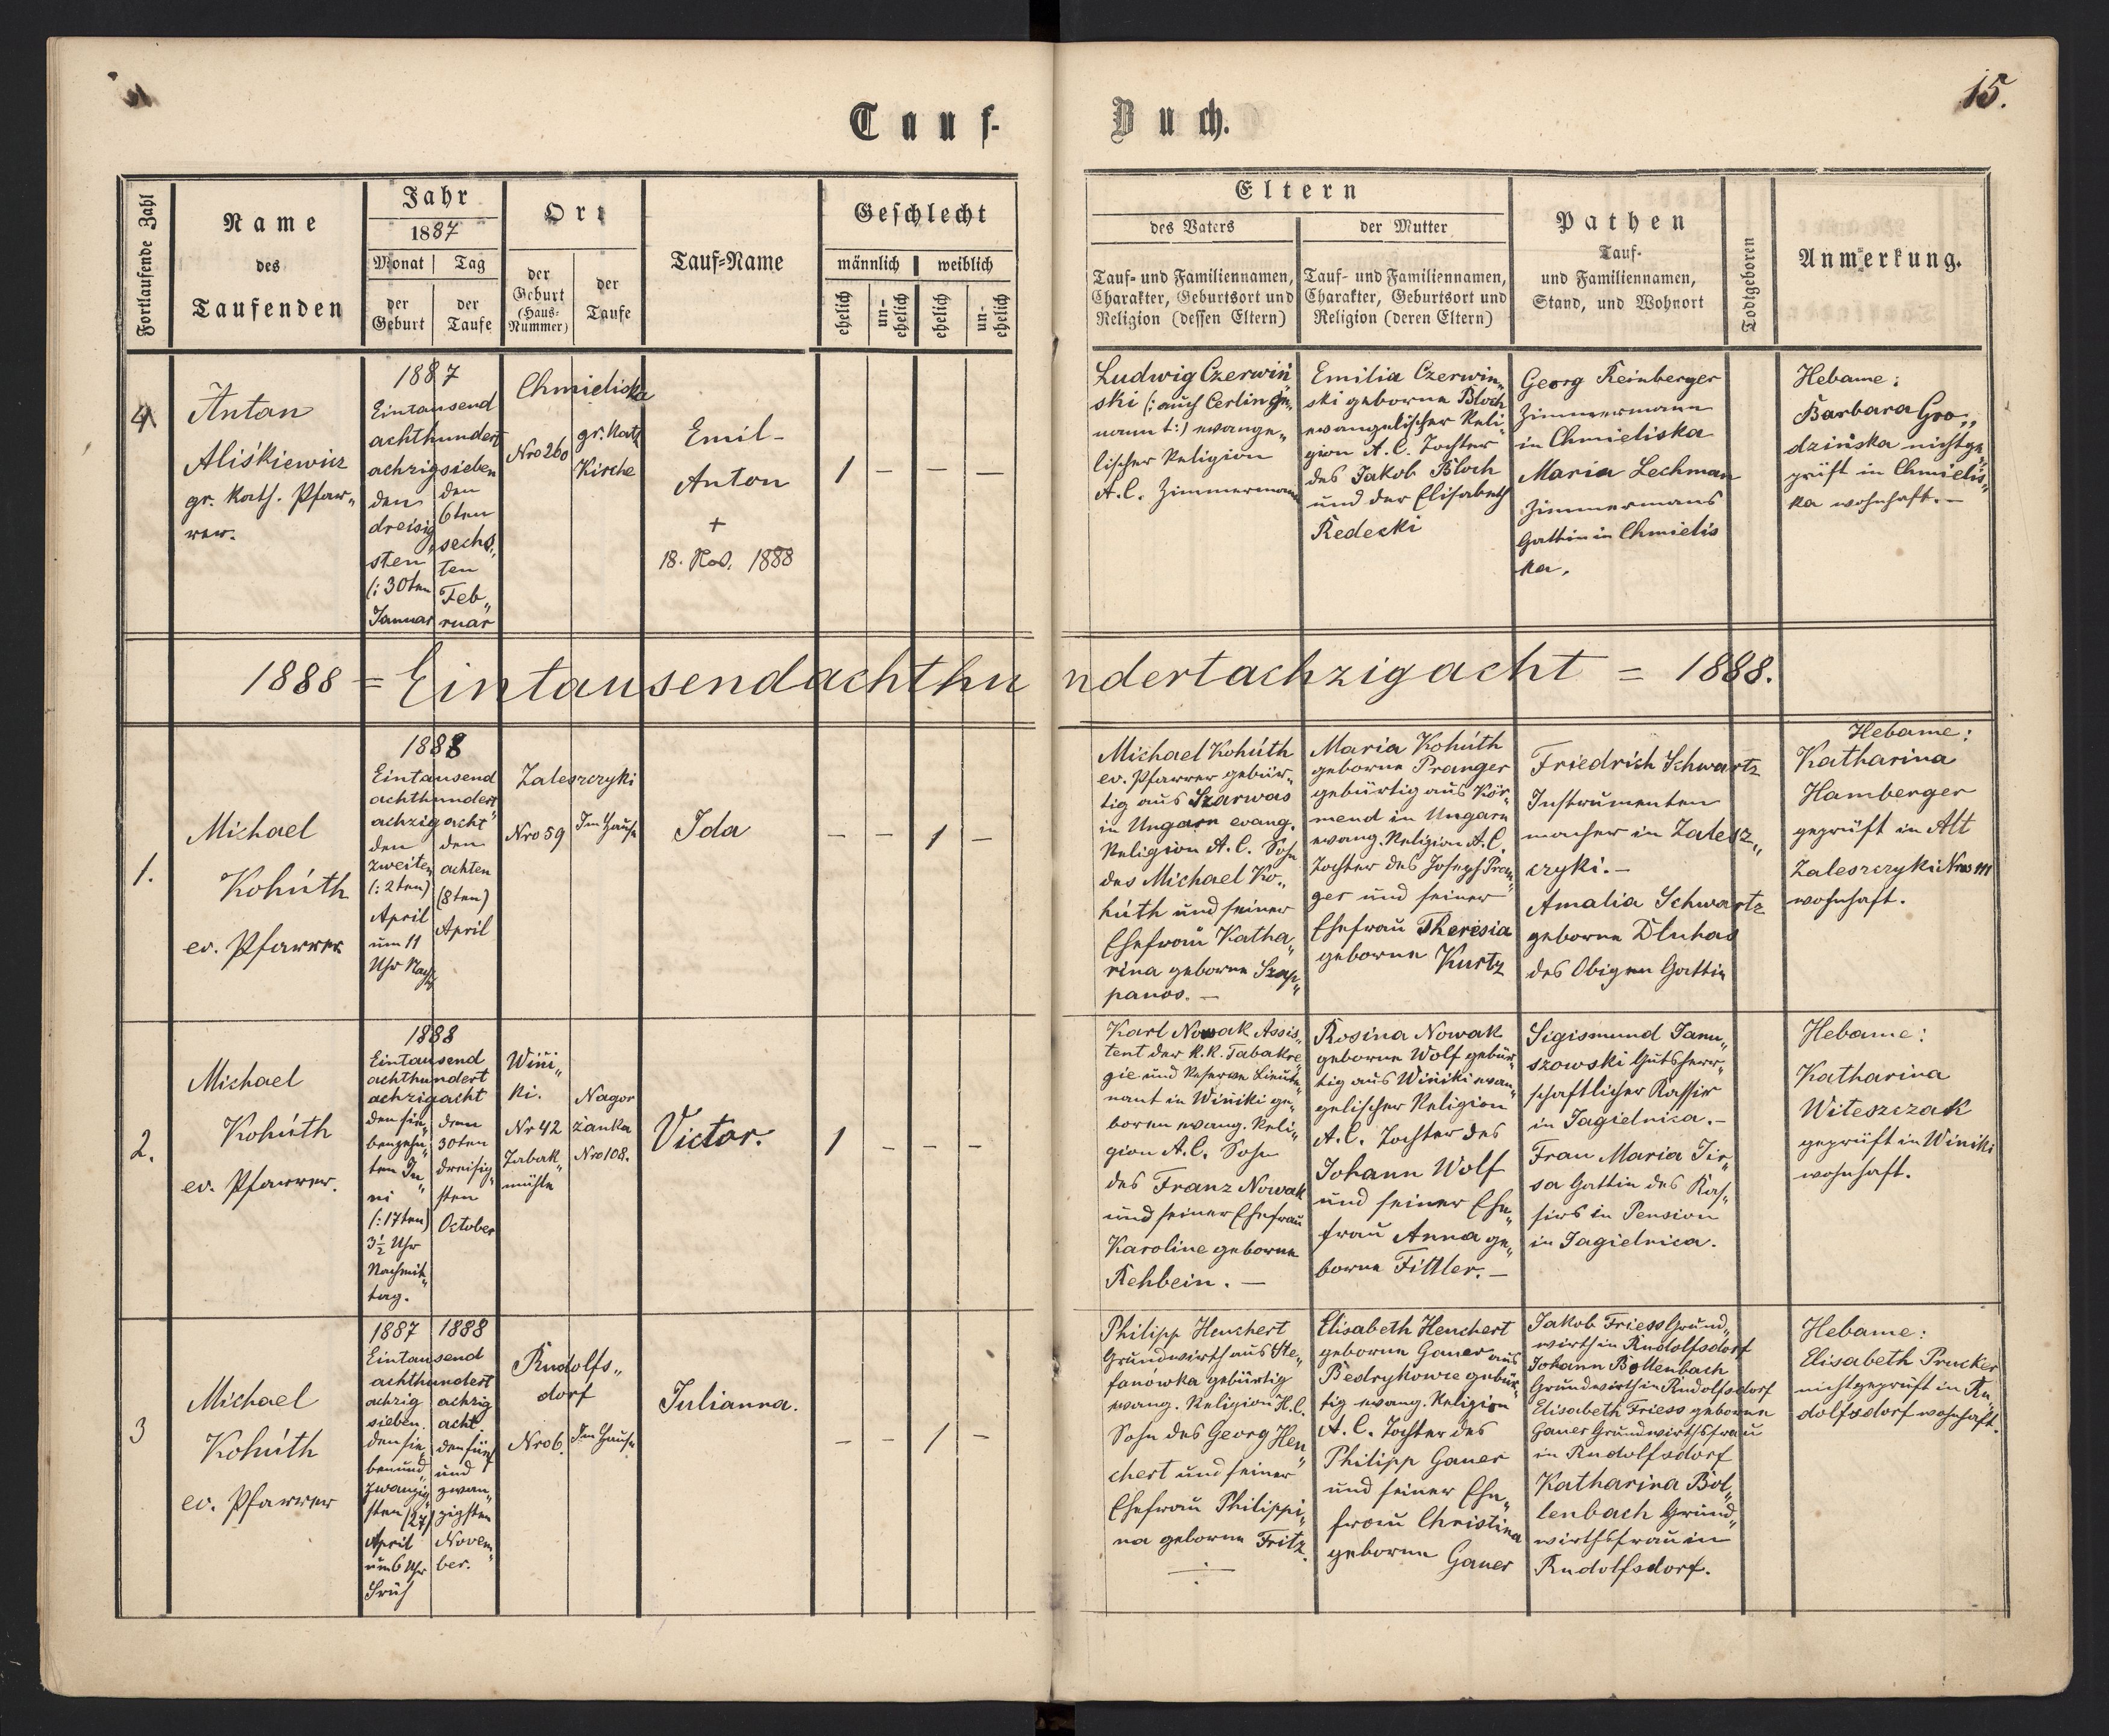 15.
Tauf-
Buch.
Fortlaufende Zahl
Name
des
Taufenden
Jahr
1887
Monat
Tag
der
Geburt
der
Taufe
Ort
der
Geburt
(Haus-
Nummer)
der
Taufe
Tauf-Name
Geschlecht
männlich
weiblich
ehelich
un-
ehelich
ehelich
un-
ehelich
Eltern
des Vaters
der Mutter
Tauf- und Familiennamen,
Charakter, Geburtsort und
Religion (dessen Eltern)
Tauf- und Familiennamen,
Charakter, Geburtsort und
Religion (deren Eltern)
Pathen
Tauf-
und Familiennamen,
Stand, und Wohnort
Todtgeboren
Anmerkung.
4
Antan
Aliśkiewicz
gr. Kath. Pfar„
rer.
1887
Eintausend
achthundert
achzigsieben
den
dreisig
sten
(: 30ten
Januar
den
6ten
sechs„
ten
Feb„
ruar
Chmieliska
Nro 260
gr. Kath
Kirche
Emil-
Anton
+
18. Nov. 1888
1 – – –
Ludwig Czerwiń„
ski (: auch Cerlin ge„
nannt :) evange„
lischer Religion
A. C. Zimmermann
Emilia Czerwin„
ski geborne Bloch
evangelischer Reli„
gion A. C. Tochter
des Jakob Bloch
und der Elisabeth
Redecki
Georg Reinberger
Zimmermann
in Chmieliska
Maria Lechman
Zimmermans
Gattin in Chmielis
ka.
Hebame:
Barbara Gro„
dzińska nichtge„
prüft in Chmielis„
ka wohnhaft. –
1888 = Eintausendachthundertachzigacht = 1888.
1.
Michael
Kohúth
ev. Pfarrer
1888
Eintausend
achthundert
achzigacht
den
zweiten
(: 2ten)
April
um 11
Uhr Nachts
den
achten
(8ten)
April
Zaleszczyki
Nro 59
Im Hause
Ida
– – 1 –
Michael Kohúth
ev. Pfarrer gebür„
tig aus Szarwas
in Ungarn evang.
Religion A. C. Sohn
des Michael Ko„
húth und seiner
Ehefrau Katha„
rina geborne Szap„
panos. –
Maria Kohúth
geborne Pranger
gebürtig aus Kör„
mend in Ungarn
evang. Religion A. C.
Tochter des Joseph Pran„
ger und seiner
Ehefrau Theresia
geborne Kurtz
Friedrich Schwartz
Instrumenten
macher in Zalesz„
czyki. –
Amalia Schwartz
geborne Dluhas
des Obigen Gattin
Hebame:
Katharina
Hamberger
geprüft in Alt
Zaleszczyki Nro 111
wohnhaft.
2.
Michael
Kohúth
ev. Pfarrer.
1888
Eintausend
achthundert
achzigacht
den sie„
benzehn„
ten Ju„
ni
(: 17ten)
3½ Uhr
Nachmit„
tag.
den
30ten
dreisig„
sten
October
Wini„
ki.
Nr 42
Tabak„
mühle
Nagor
żanka
Nro 108.
Victor.
1 – – –
Karl Nowak Assis„
tent der K. K. Tabakre„
gie und Reserve Lieute„
nant in Winiki ge„
boren evang. Reli„
gion A. C. Sohn
des Franz Nowak
und seiner Ehefrau
Karoline geborne
Rehbein. –
Rosina Nowak
geborne Wolf gebür„
tig aus Winiki evan„
gelischer Religion
A. C. Tochter des
Johann Wolf
und seiner Ehe„
frau Anna ge„
borne Fittler. –
Sigismund Janu„
szowski Gutsherr„
schaftlicher Kassir
in Jagielnica. –
Frau Maria Jir„
sa Gattin des Kas„
sirs in Pension
in Jagielnica.
Hebame:
Katharina
Witeszczak
geprüft in Winiki
wohnhaft.
3
Michael
Kohúth
ev. Pfarrer
1887
1888
Eintausend
achthundert
achzig
sieben.
den sie„
benund„
zwanzig„
sten (27)
April
um 6 Uhr
Früh
achzig
acht
den fünf
und
zwan„
zigsten
Novem„
ber.
Rudolfs„
dorf
Nro 6.
Im Hause
Julianna.
– – 1 –
Philipp Henchert
Grundwirth aus Ste„
fanowka gebürtig
evang. Religion H. C.
Sohn des Georg Hen„
chert und seiner
Ehefrau Philippi„
na geborne Fritz.
Elisabeth Henchert
geborne Gauer aus
Bedrykowce gebür„
tig evang. Religion
A. C. Tochter des
Philipp Gauer
und seiner Ehe„
frau Christina
geborne Gauer
Jakob Friess Grund„
wirth in Rudolfsdorf
Johann Bollenbach
Grundwirth in Rudolfsdorf
Elisabeth Friess geborne
Gauer Grundwirthsfrau
in Rudolfsdorf
Katharina Bol„
lenbach Grund„
wirthsfrau in
Rudolfsdorf.
Hebame:
Elisabeth Prucker
nichtgeprüft in Ru„
dolfsdorf wohnhaft.